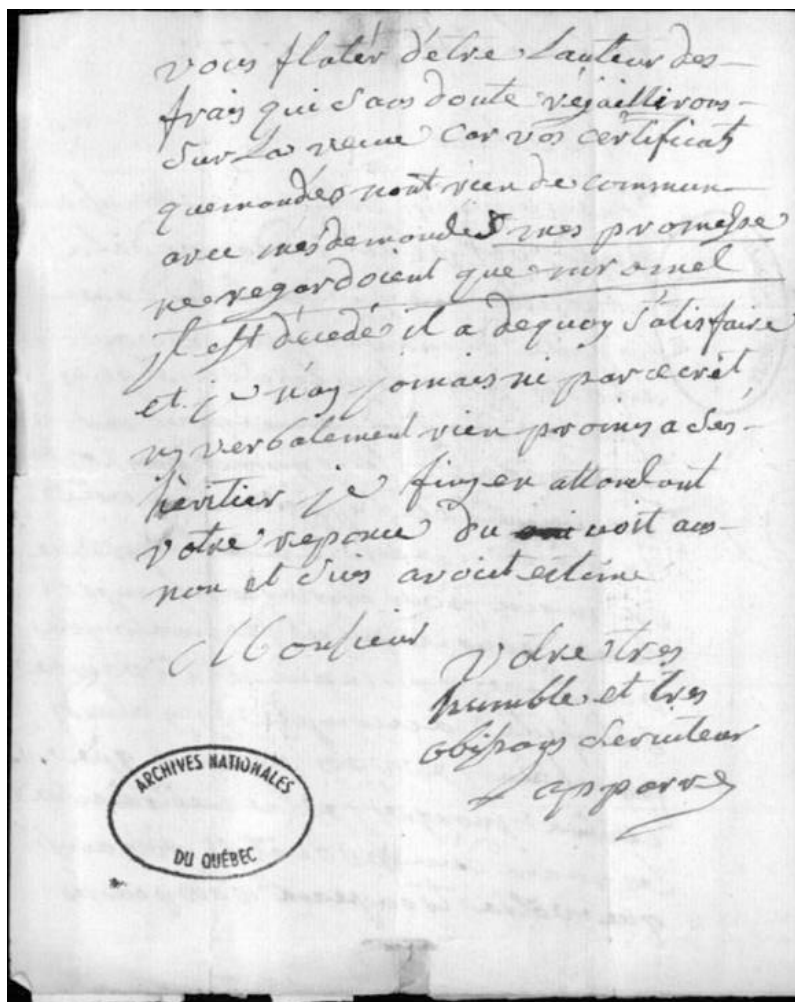 vous flater d'etre Lauteur des
frais qui sans doute rejaillirons
Sur La veuve Car vos certificats
que mondes nont rien de commun
avec mes demandes mes promesse
ne regardoient que mr amel
jl est décedé il a dequoy satisfaire
et je n'ay jamais ne par ecrit
ny verbalement rien promis a ses
heritier je finy en attendant
votre reponce du oui
non et suis avout estime
Monsieur
votre tres
humble et tres
obeisans serviteur
Lapparre
ARCHIVES NATIONALES
DU QUÉBEC